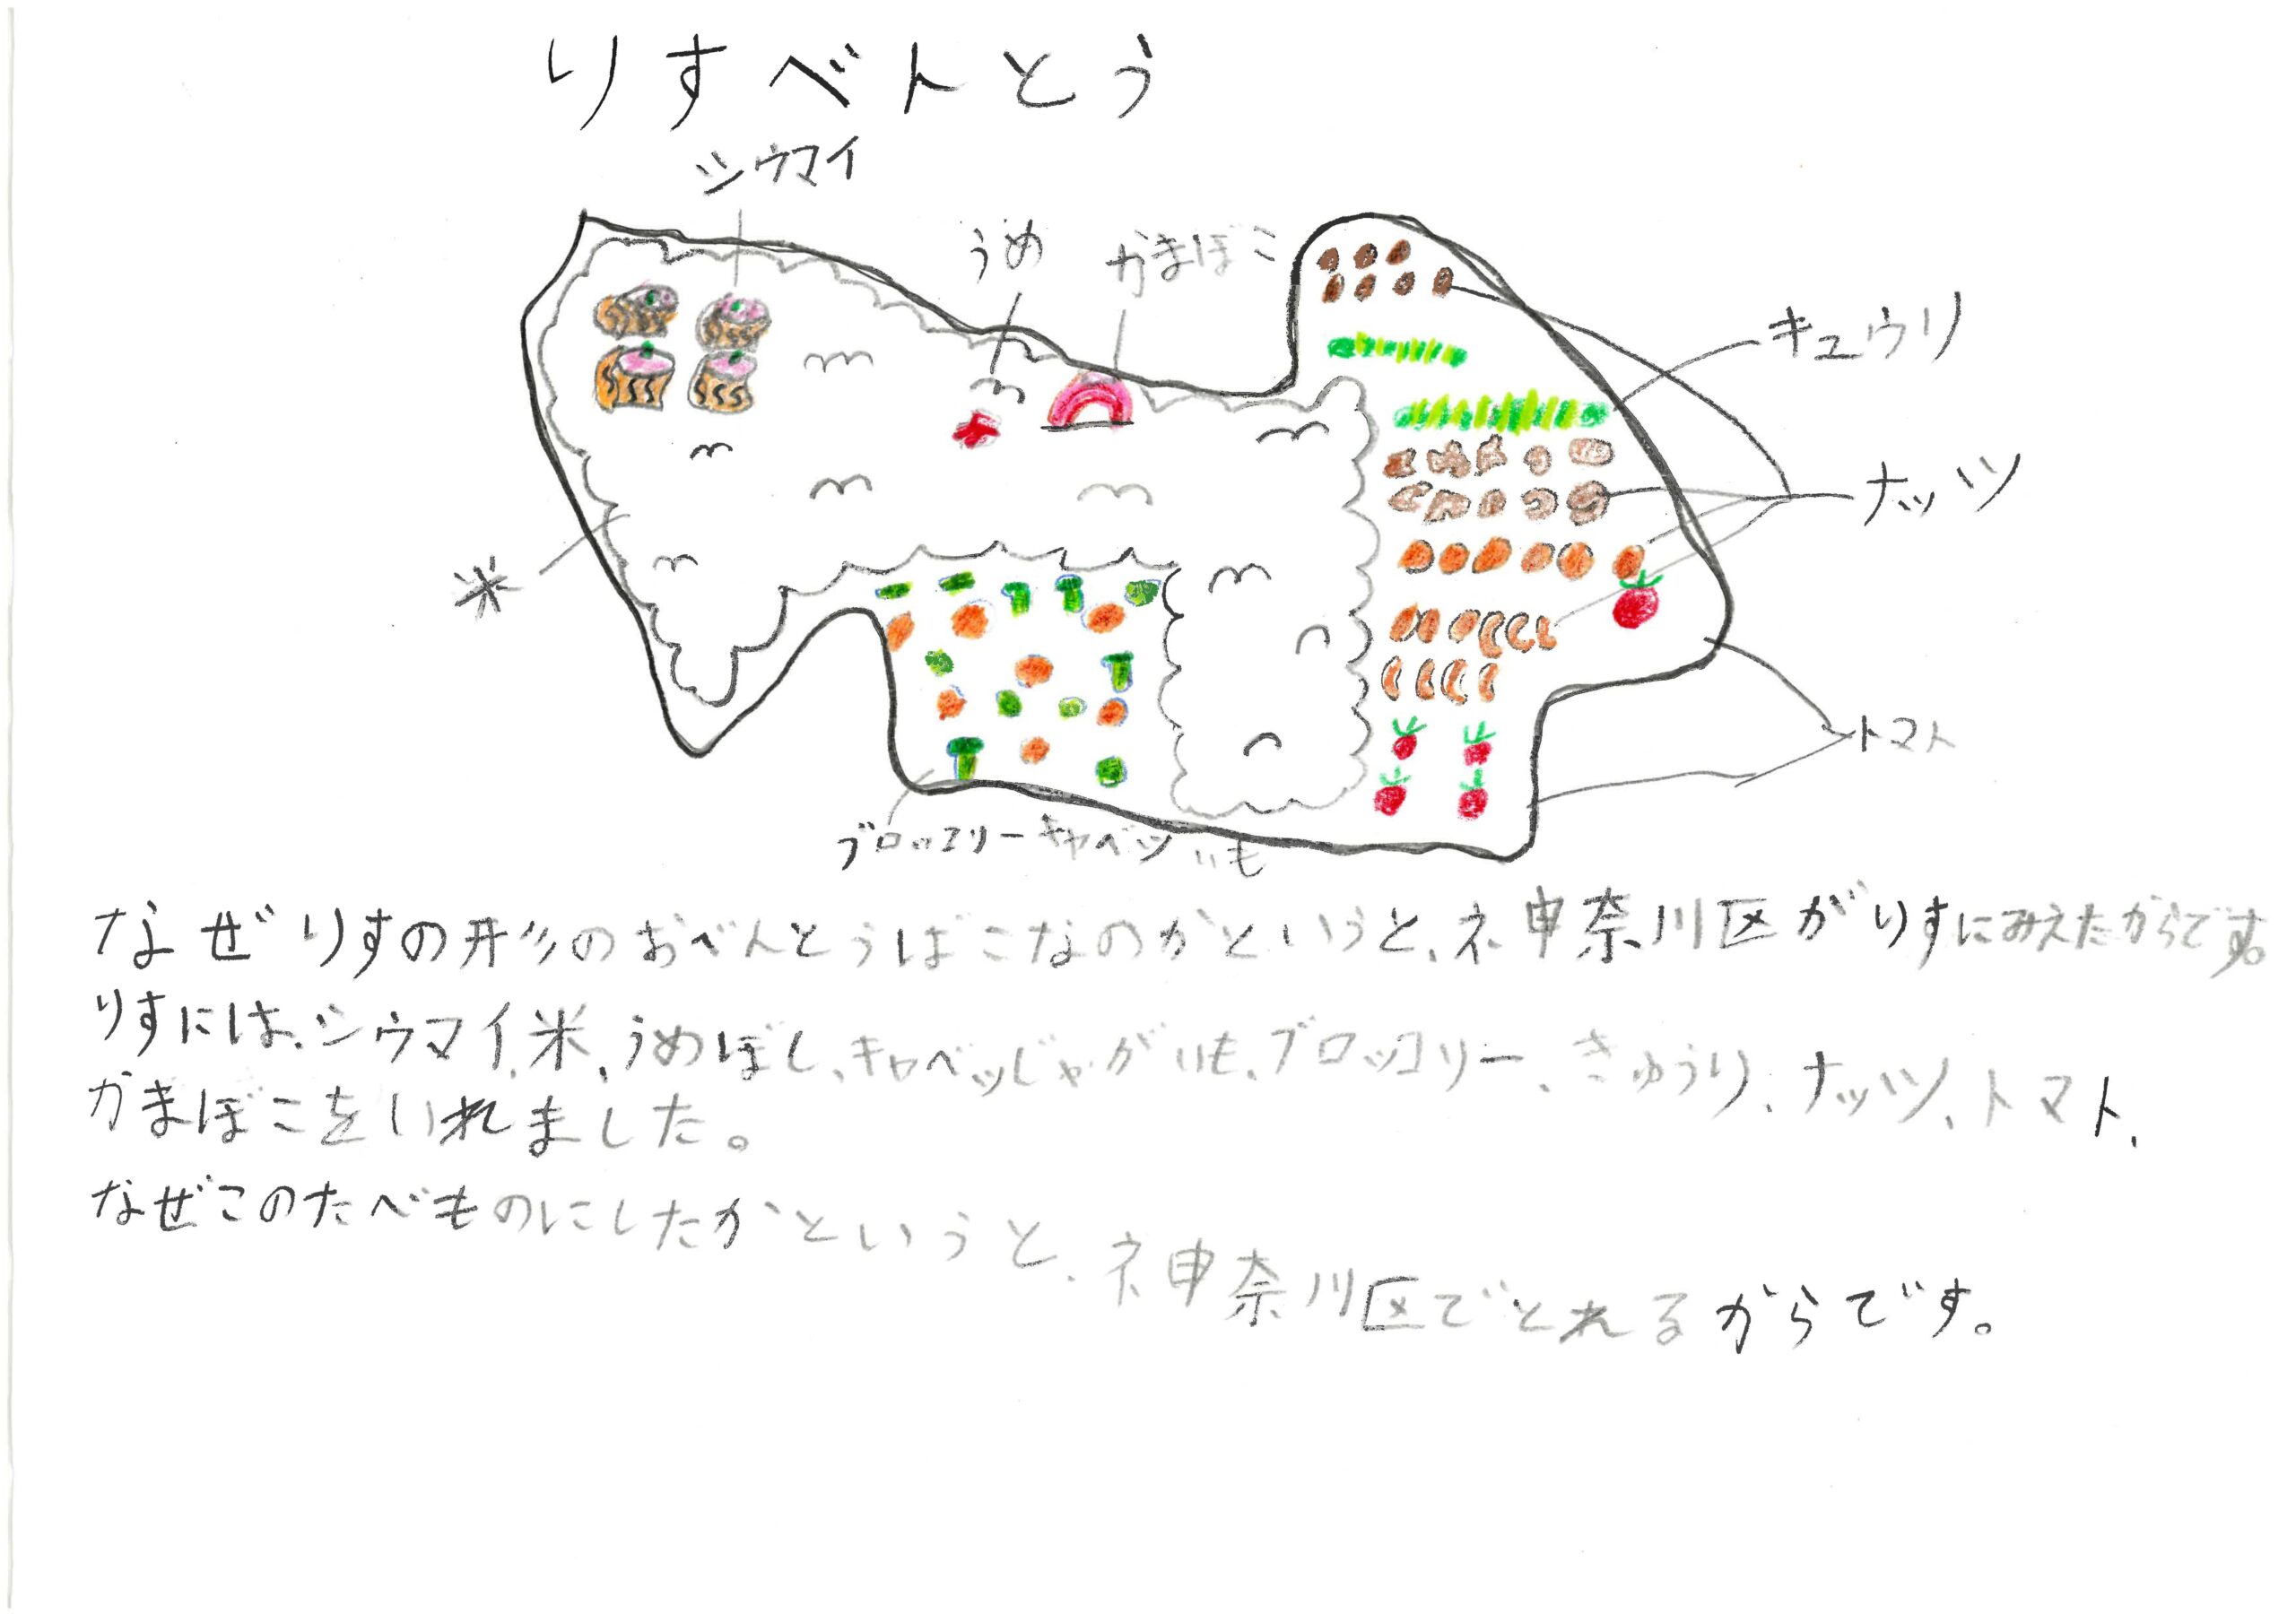 りすべんとう
シウマイ
うめ
かまぼこ
キュウリ
ナッツ
米
トマト
ブロッコリーキャベツいも
なぜりすの形のおべんとうばこなのかというと、神奈川区がりすにみえたからです。
りすには、シウマイ、米、うめぼし、キャベツじゃがいも、ブロッコリー、きゅうり、ナッツ、トマト、
かまぼこをいれました。
なぜこのたべものにしたかというと、神奈川区でとれるからです。